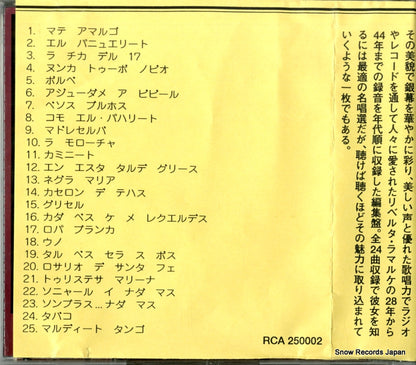 1. マテ アマルゴ
2. エル パニュエリート
3. ラ チカ デル 17
4. ヌンカ トゥーボ ノビオ
5. ボルベ
6. アジューダメ ア ビビール
7. ベソス ブルホス
8. コモ エル・パハリート
9. マドレセルバ
10. ラ モローチャ
11. カミニート
12. エン エスタ タルデ グリース
13. ネグラ マリア
14. カセロン デ テハス
15. グリセル
16. カダ ベス ケ メ レクエルデス
17. ロパ ブランカ
18. ウノ
19. タル ベス セラ ス ボス
20. ロサリオ デ サンタ フェ
21. トゥリステサ マリーナ
22. ソニャール イ ナダ マス
23. ソンブラス…ナダ マス
24. タバコ
25. マルディート タンゴ
その美貌で銀幕を華やかに彩り、美しい声と優れた歌唱力でラジオ
やレコードを通して人々に愛されたリベルタ・ラマルケの28年から
44年までの録音を年代順に収録した編集盤。全24曲収録で彼女を知
るには最適の名唱選だが、聴けば聴くほどその魅力に取り込まれて
いくような一枚でもある。
RCA 250002
Snow Records Japan